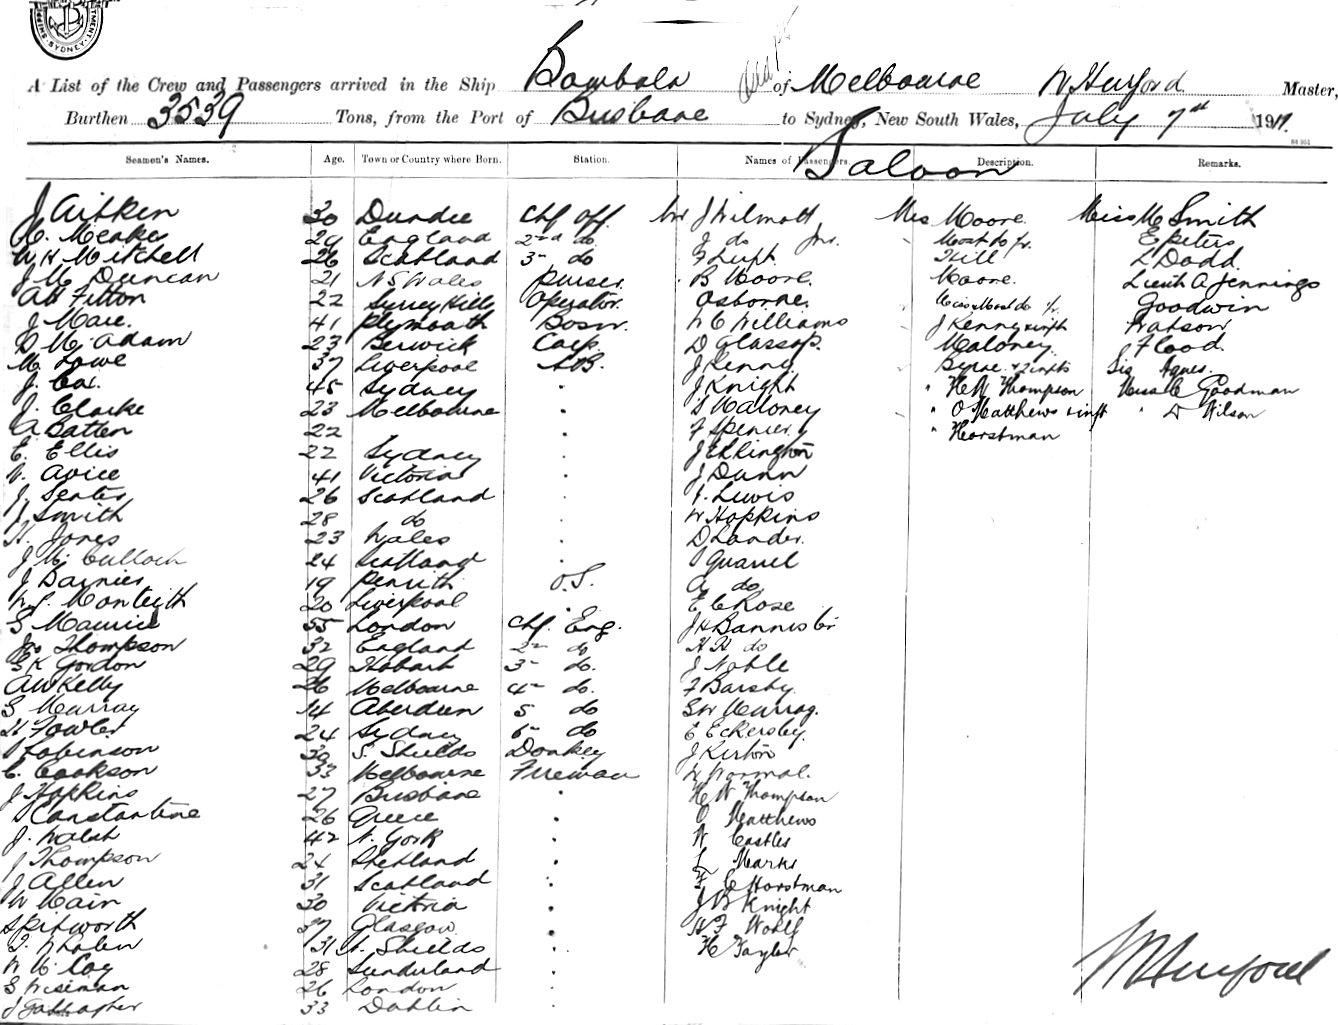 SYDNEY
A List of the Crew and Passengers arrived in the Ship Bombala of Melbourne W Hurford Master,
Burthen 3539 Tons, from the Port of Brisbane to Sydney, New South Wales, July 7th 1911.
Seamen's Names. Age. Town or Country where Born. Station. Names of Passengers. Description. Remarks.
Saloon
J Aitken 30 Dundee Chf Off. Mr J Wilmott Mrs Moore. Miss M Smith
H. Meaker 29 England 2nd do J do Jnr. Most do E Peters
W H Mitchell 26 Scotland 3 do Luft Hill L Dodd
J Mc Duncan 21 N S Wales Purser B Moore. Moore. Lieut A Jennings
A H Fitton 22 Surrey Hills Operator. Osborne. Goodwin
J Mare. 41 Plymouth Bosn. W C Williams J Kenny & inft Watson
D Mc Adam 23 Berwick Carp. D Glassop. Maloney Flood.
M Lowe 37 Liverpool A.B. J Kenny Byrne & 2 infts Sig Agnes.
J. Cox. 45 Sydney " J Knight " H W Thompson Miss C Goodman
J. Clarke 23 Melbourne " S Maloney " O Matthews & inft " D Wilson
A Batten 22 " F Spencer " Horstman
E. Ellis 22 Sydney " J Elkington
41 Victoria " J Dunn
J 26 Scotland " Lewis
J Smith 28 do " W Hopkins
H. Jones 23 Wales " D Lander.
J Mc Culloch 24 Scotland "
J Barnier 19 Penrith O.S. do
W S. Monteith 20 Liverpool " E C Rose
S Maurice 55 London Chf. Eng. J H Bannister
Jno Thompson 32 England 2 do H H do
G K Gordon 29 Hobart 3 do. J Noble
A W Kelly 26 Melbourne 4 do. F Barsby
S Murray 24 Aberdeen 5 do S W Murray.
H Fowler 24 Sydney 6 do E Eckersby.
Robinson 30 S. Shields Donkey J Kirton
C. Cookson 33 Melbourne Fireman W Wormal.
J Hopkins 27 Brisbane " H W Thompson
Constantine 26 Greece " O Matthews
J. Walsh 42 N. York " W Castles
J Thompson 24 Shetland " L Marks
J Allen 31 Scotland " F C Horstman
W Main 30 Victoria " J W Knight
Skipworth 37 Glasgow " H F Wohlf
T. Whalen 31 N. Shields " H Taylor
W Mc Coy 28 Sunderland "
S Wiseman 26 London "
J Gallagher 33 Dublin "
W Hurford